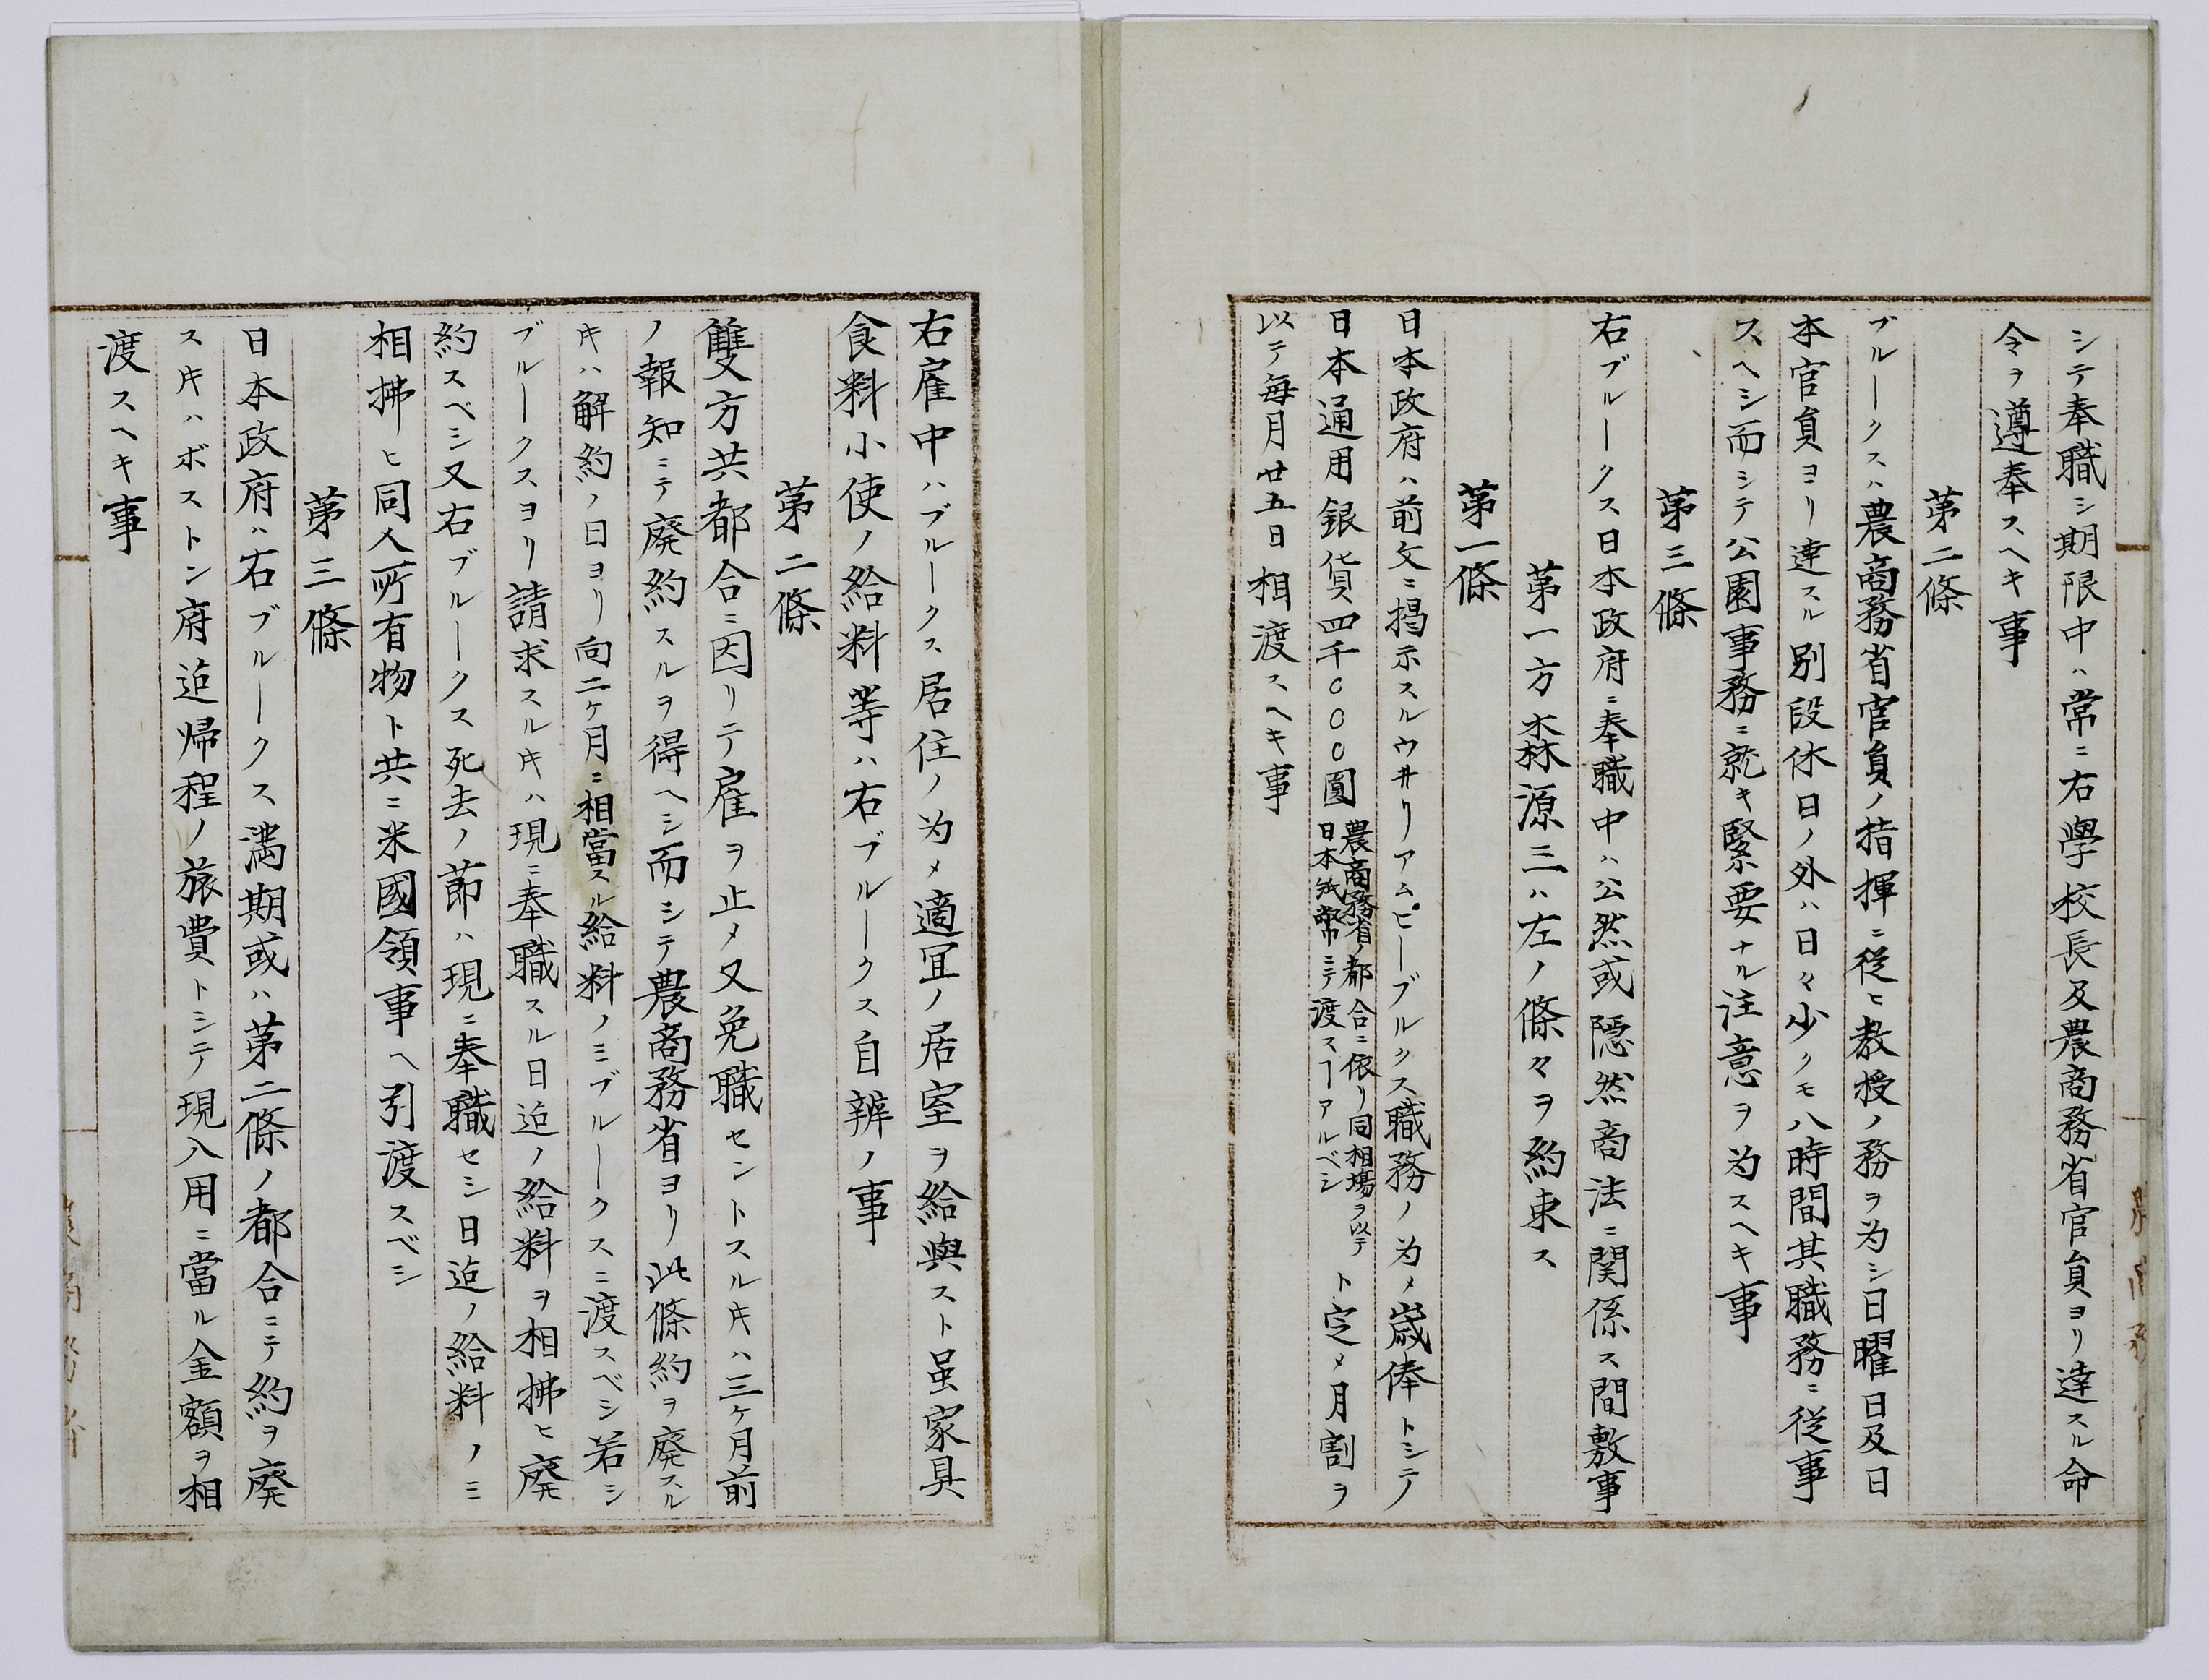 シテ奉職シ期限中ハ常ニ右學校長及農商務省官員ヨリ達スル命
令ヲ遵奉スヘキ事
第二條
ブルークスハ農商務省官員ノ指揮ニ従ヒ教授ノ務ヲ为シ日曜日及日
本官員ヨリ達スル別段休日ノ外ハ日々少クモ八時間其職務ニ従事
スヘシ而シテ公園事務ニ就キ緊要ナル注意ヲ为スヘキ事
第三條
右ブルークス日本政府ニ奉職中ハ公然或隠然商法ニ関係ス間敷事
第一方森源三ハ左ノ條々ヲ約束ス
第一條
日本政府ハ前文ニ掲示スルウヰリアムピーブルクス職務ノ为メ歳俸トシテ
日本通用銀貨四千〇〇〇圓
農商務省ノ都合ニ依リ同相場ヲ以テ
日本紙幣ニテ渡スヿアルベシ
ト定メ月割ヲ
以テ毎月廿五日相渡スヘキ事
右雇中ハブルークス居住ノ为メ適宜ノ居室ヲ給與スト虽家具
食料小使ノ給料等ハ右ブルークス自辨ノ事
第二條
雙方共都合ニ因リテ雇ヲ止メ又免職セントスルキハ三ヶ月前
ノ報知ニテ廃約スルヲ得ヘシ而シテ農商務省ヨリ此條約ヲ廃スル
キハ解約ノ日ヨリ向二ヶ月ニ相當スル給料ノミブルークスニ渡スベシ若シ
ブルークスヨリ請求スルキハ現ニ奉職スル日迠ノ給料ヲ相拂ヒ廃
約スベシ又右ブルークス死去ノ節ハ現ニ奉職セシ日迠ノ給料ノミ
相拂ヒ同人所有物ト共ニ米國領事ヘ引渡スベシ
第三條
日本政府ハ右ブルークス満期或ハ第二條ノ都合ニテ約ヲ廃
スキハボストン府迠帰程ノ旅費トシテ現入用ニ當ル金額ヲ相
渡スヘキ事